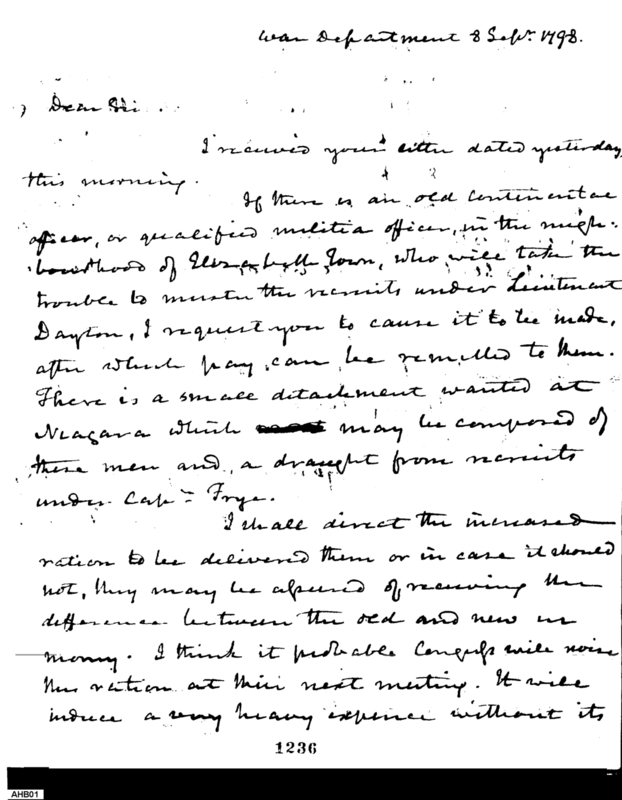 War Department 8 Sept. 1798.
Dear Sir.
I received your letter dated yesterday,
this morning.
If there is an old Continental
officer, or qualified militia officer, in the neigh-
bourhood of Elizabeth Town, who will take the
trouble to muster the recruits under Lieutenant
Dayton, I request you to cause it to be made,
after which pay can be remitted to them.
There is a small detachment wanted at
Niagara which may be composed of
these men and a draught from recruits
under Capn Frye.
I shall direct the increased
ration to be delivered them or in case it should
not, they may be assured of receiving the
difference between the old and new in
money. I think it probable Congress will
this ration at their next meeting. It will
induce a very heavy expence without its
1236
AHB01